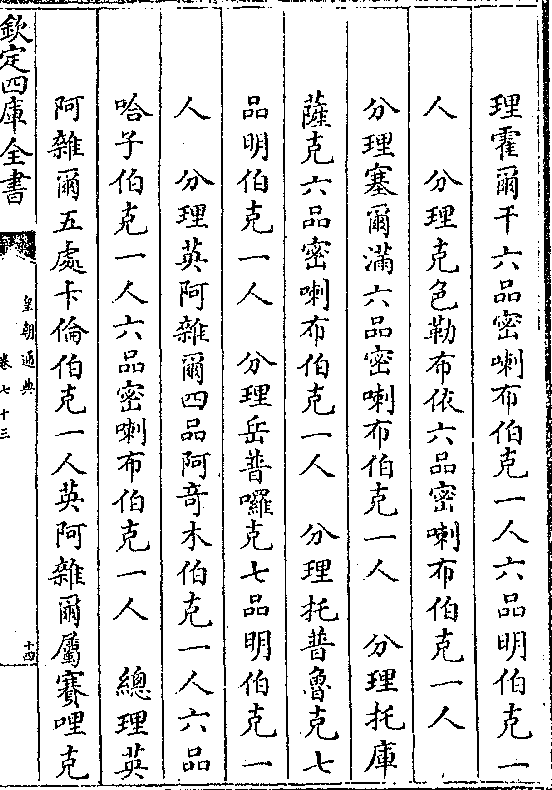 理霍爾干六品密喇布伯克一人六品明伯克一
人　分理克色勒布依六品密喇布伯克一人
分理塞爾滿六品密喇布伯克一人　分理托庫
薩克六品密喇布伯克一人　分理托普魯克七
品明伯克一人　分理岳普囉克七品明伯克一
人　分理英阿雜爾四品阿竒木伯克一人六品
哈子伯克一人六品密喇布伯克一人　總理英
阿雜爾五處卡倫伯克一人英阿雜爾屬賽哩克
欽定四庫全書
皇朝通典
卷七十三
十四